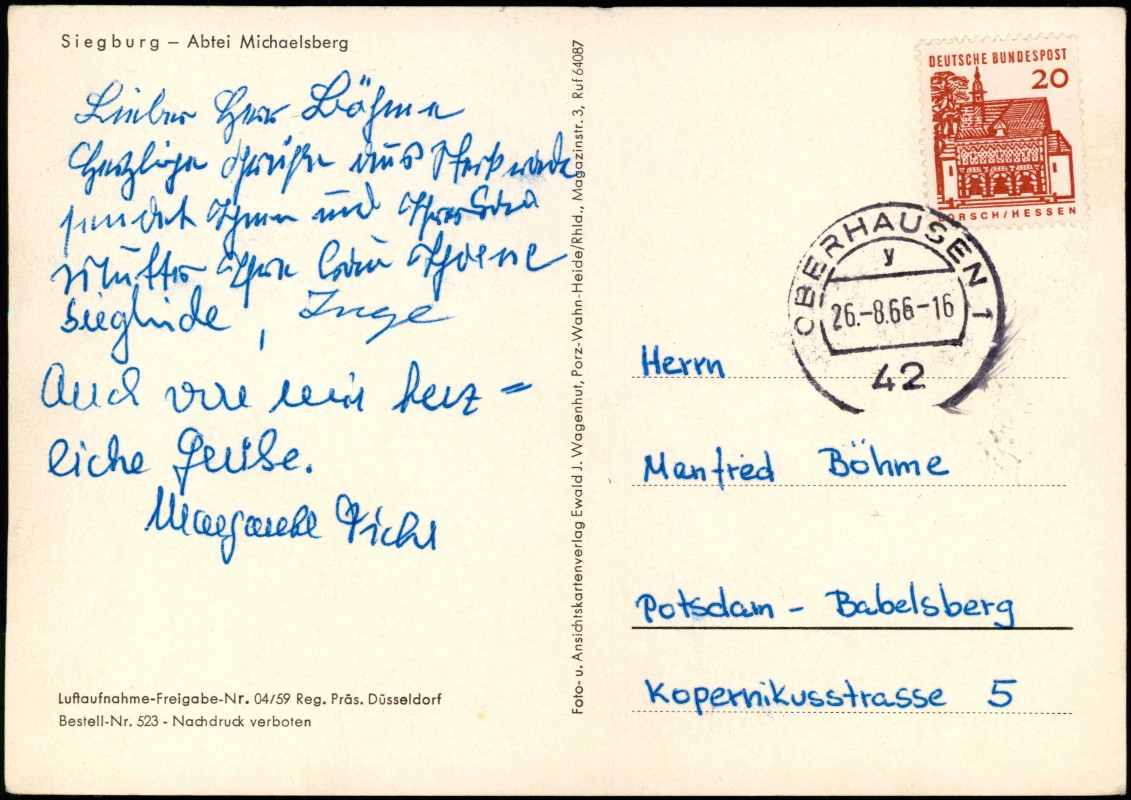 Siegburg – Abtei Michaelsberg
Lieber Herr Böhme
Herzliche Grüße aus Sterkrade
sendet Ihnen und Ihrer
Mutter Ihre
Sieglinde, Inge
Auch von mir herz=
liche Grüße.
Margarete
Luftaufnahme-Freigabe-Nr. 04/59 Reg. Präs. Düsseldorf
Bestell-Nr. 523 - Nachdruck verboten
Foto- u. Ansichtskartenverlag Ewald J. Wagenhut, Porz-Wahn-Heide/Rhld., Magazinstr. 3, Ruf 64087
DEUTSCHE BUNDESPOST
20
LORSCH/HESSEN
OBERHAUSEN 1
y
26.-8.66-16
42
Herrn
Manfred Böhme
Potsdam - Babelsberg
Kopernikusstrasse 5